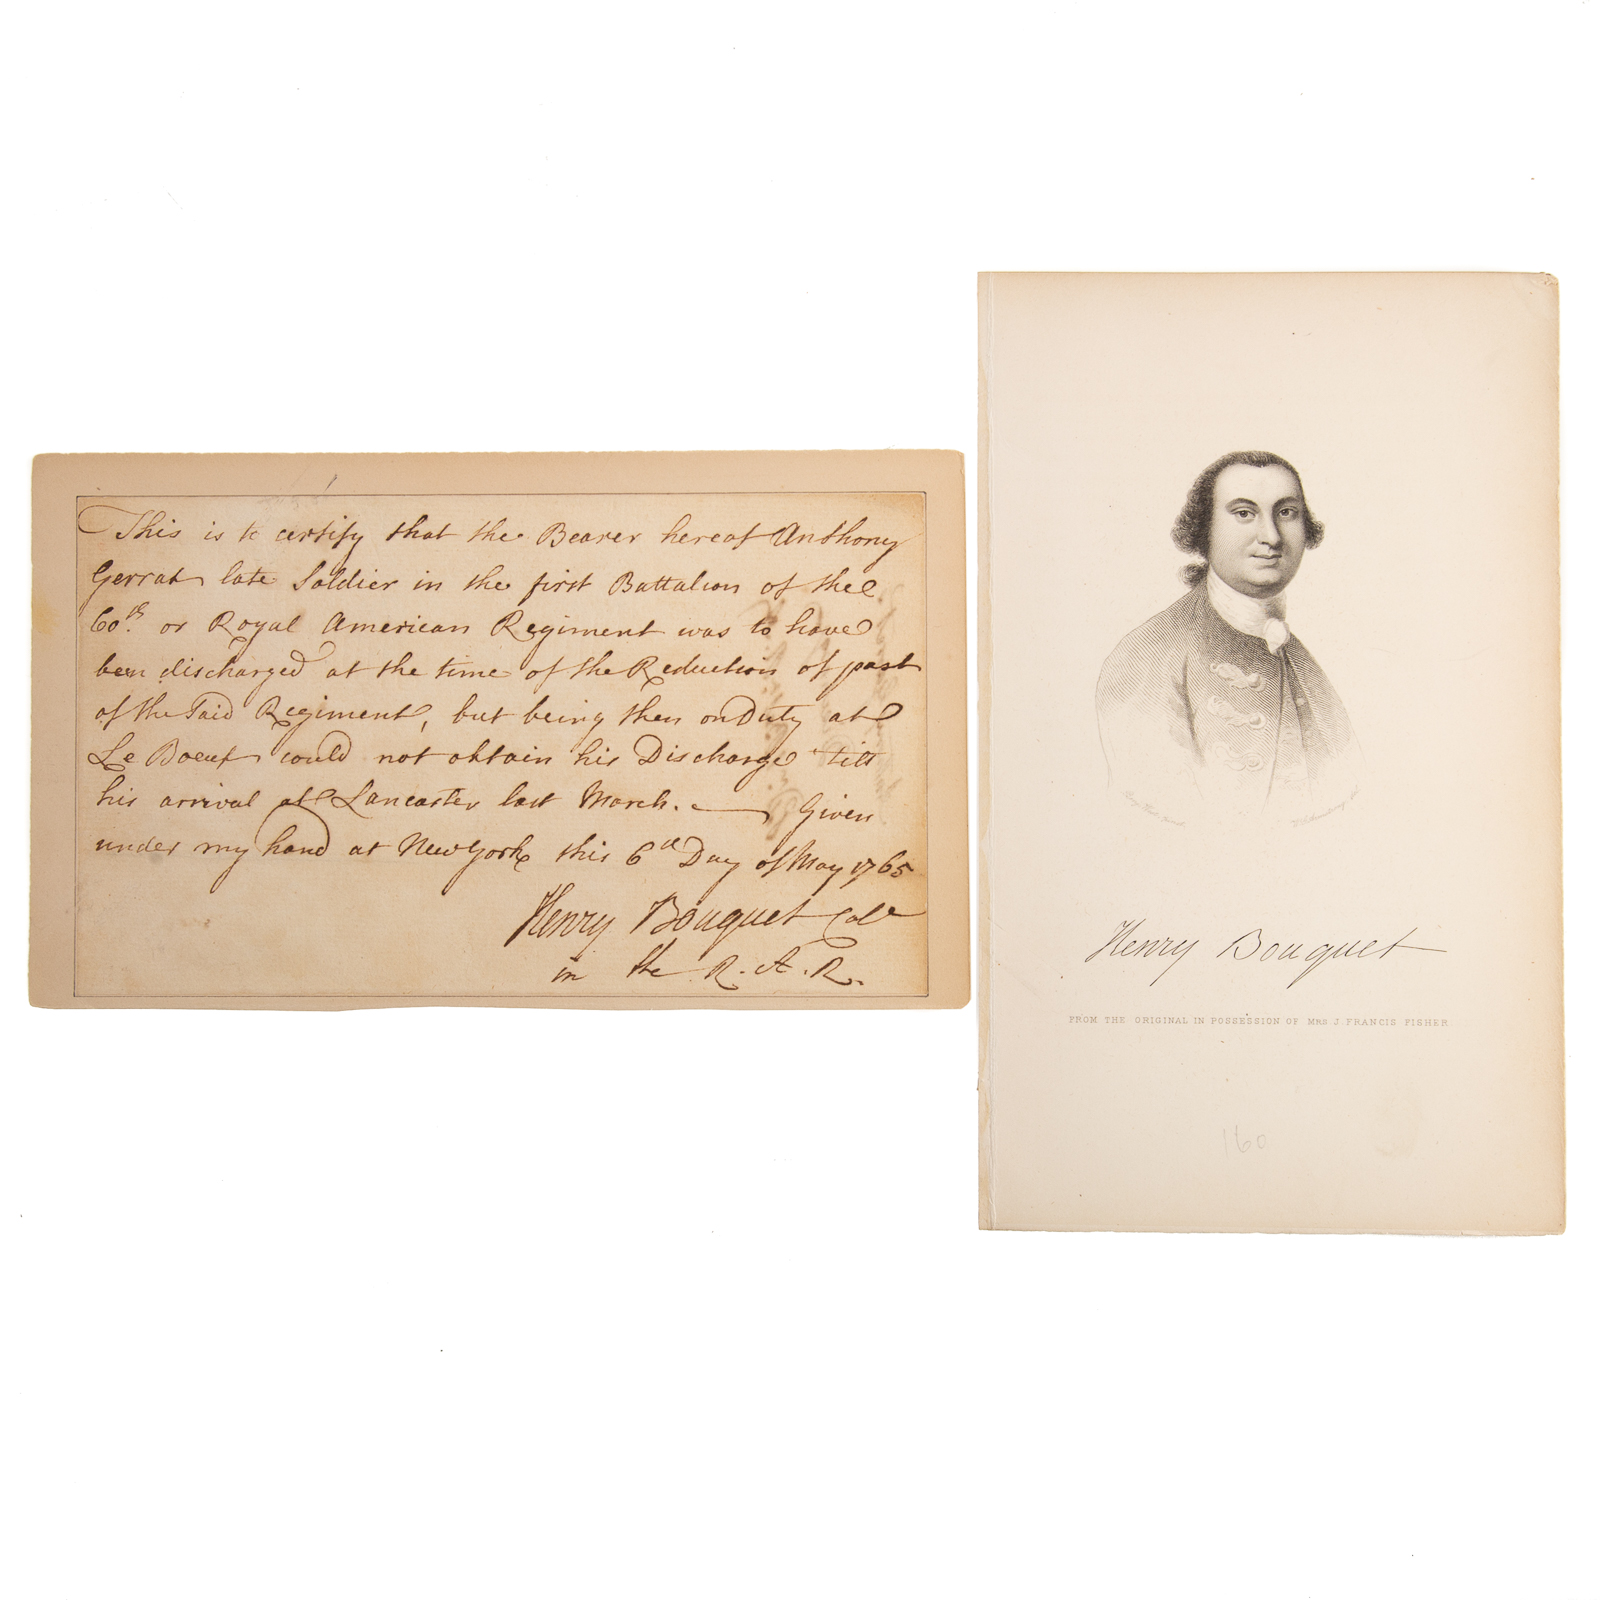 This is to certify that the Bearer hereof Anthony
Gerrat late Soldier in the first Battalion of the
60th. or Royal American Regiment was to have
been discharged at the time of the Reduction of part
of the Said Regiment, but being then on Duty at
Le Boeuf could not obtain his Discharge till
his arrival at Lancaster last March. — Given
under my hand at New York this 6th Day of May 1765
Henry Bouquet Coll
in the R. A. R.
Henry Bouquet
FROM THE ORIGINAL IN POSSESSION OF MRS J FRANCIS FISHER
160